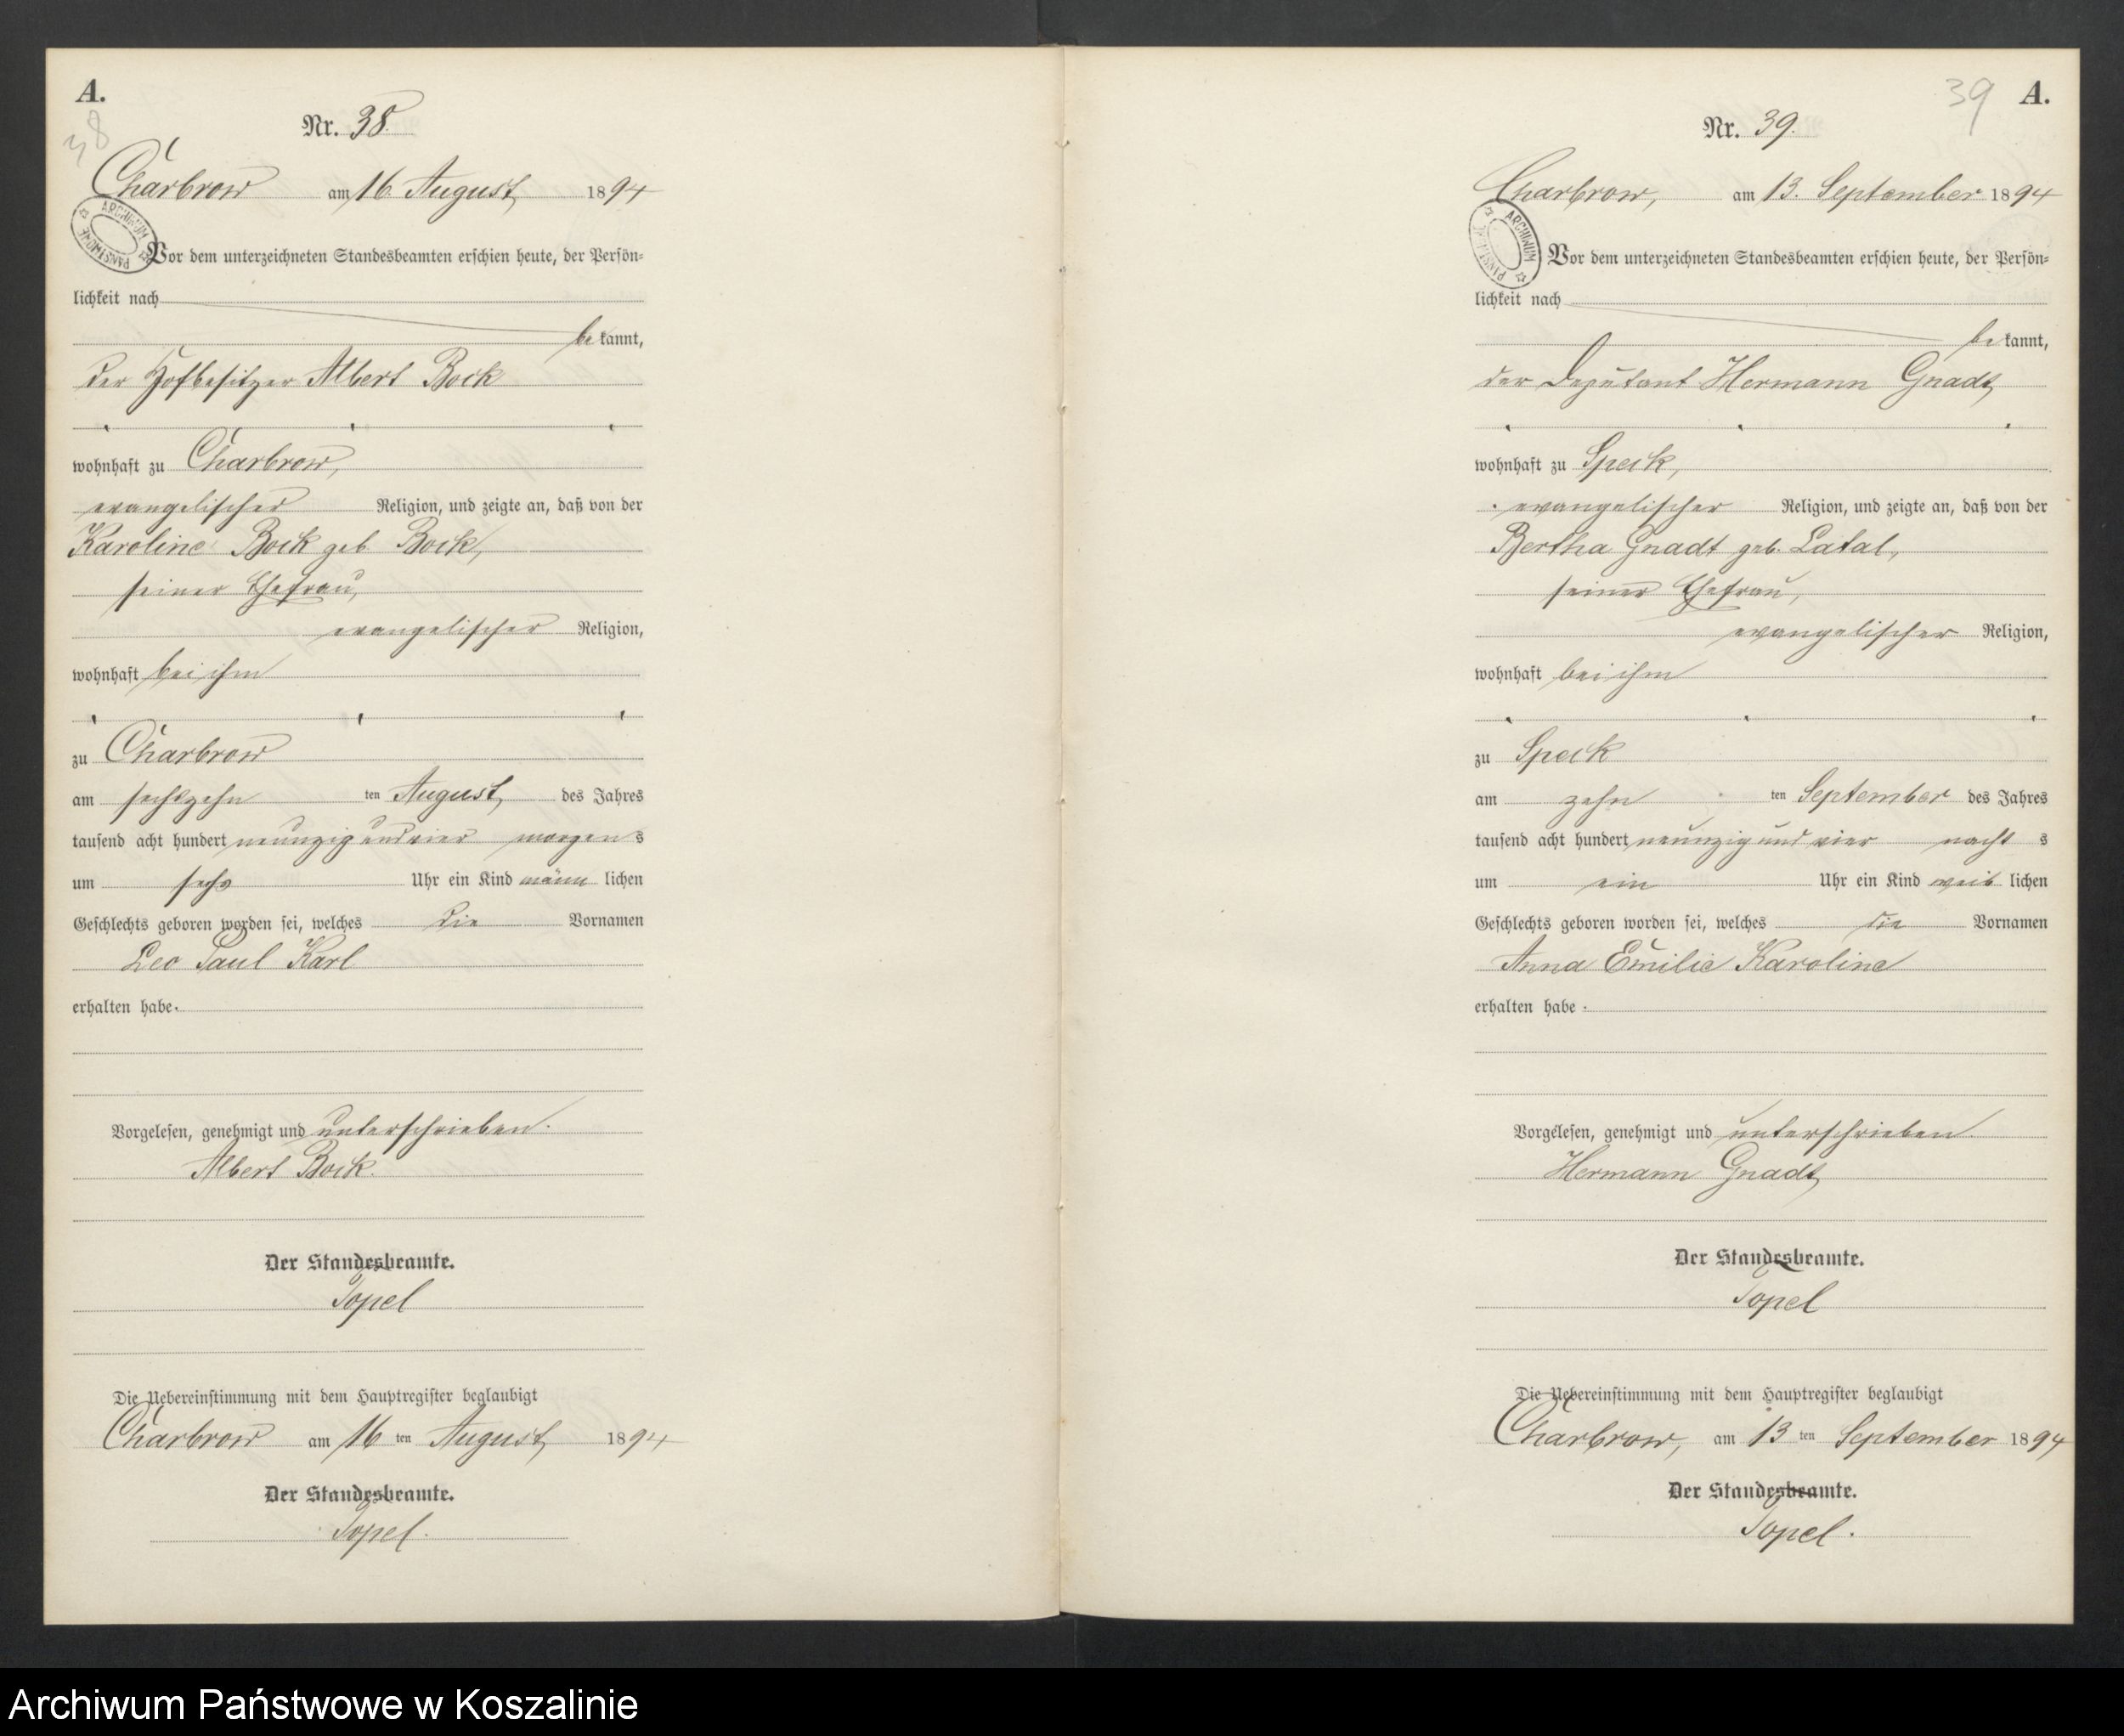 A.
38
Nr. 38.
Charbrow am 16. August 1894
ARCHIWUM PAŃSTWOWE
Vor dem unterzeichneten Standesbeamten erschien heute, der Persön-
lichkeit nach
be kannt,
der Hofbesitzer Albert Bock
wohnhaft zu Charbrow,
evangelischer Religion, und zeigte an, daß von der
Karoline Bock geb. Bock,
seiner Ehefrau,
evangelischer Religion,
wohnhaft bei ihm
zu Charbrow
am sechszehn ten August des Jahres
tausend acht hundert neunzig und vier morgens
um sechs Uhr ein Kind männ lichen
Geschlechts geboren worden sei, welches die Vornamen
Leo Paul Karl
erhalten habe.
Vorgelesen, genehmigt und unterschrieben.
Albert Bock.
Der Standesbeamte.
Topel
Die Uebereinstimmung mit dem Hauptregister beglaubigt
Charbrow am 16 ten August 1894
Der Standesbeamte.
Topel.
39 A.
Nr. 39.
Charbrow, am 13. September 1894
ARCHIWUM
Vor dem unterzeichneten Standesbeamten erschien heute, der Persön-
lichkeit nach
be kannt,
der Deputant Hermann Gnadt
wohnhaft zu Speck,
evangelischer Religion, und zeigte an, daß von der
Bertha Gnadt geb. Latal,
seiner Ehefrau,
evangelischer Religion,
wohnhaft bei ihm
zu Speck
am zehn ten September des Jahres
tausend acht hundert neunzig und vier nacht s
um ein Uhr ein Kind weib lichen
Geschlechts geboren worden sei, welches die Vornamen
Anna Emilie Karoline
erhalten habe.
Vorgelesen, genehmigt und unterschrieben.
Hermann Gnadt
Der Standesbeamte.
Topel
Die Uebereinstimmung mit dem Hauptregister beglaubigt
Charbrow, am 13 ten September 1894
Der Standesbeamte.
Topel.
Archiwum Państwowe w Koszalinie